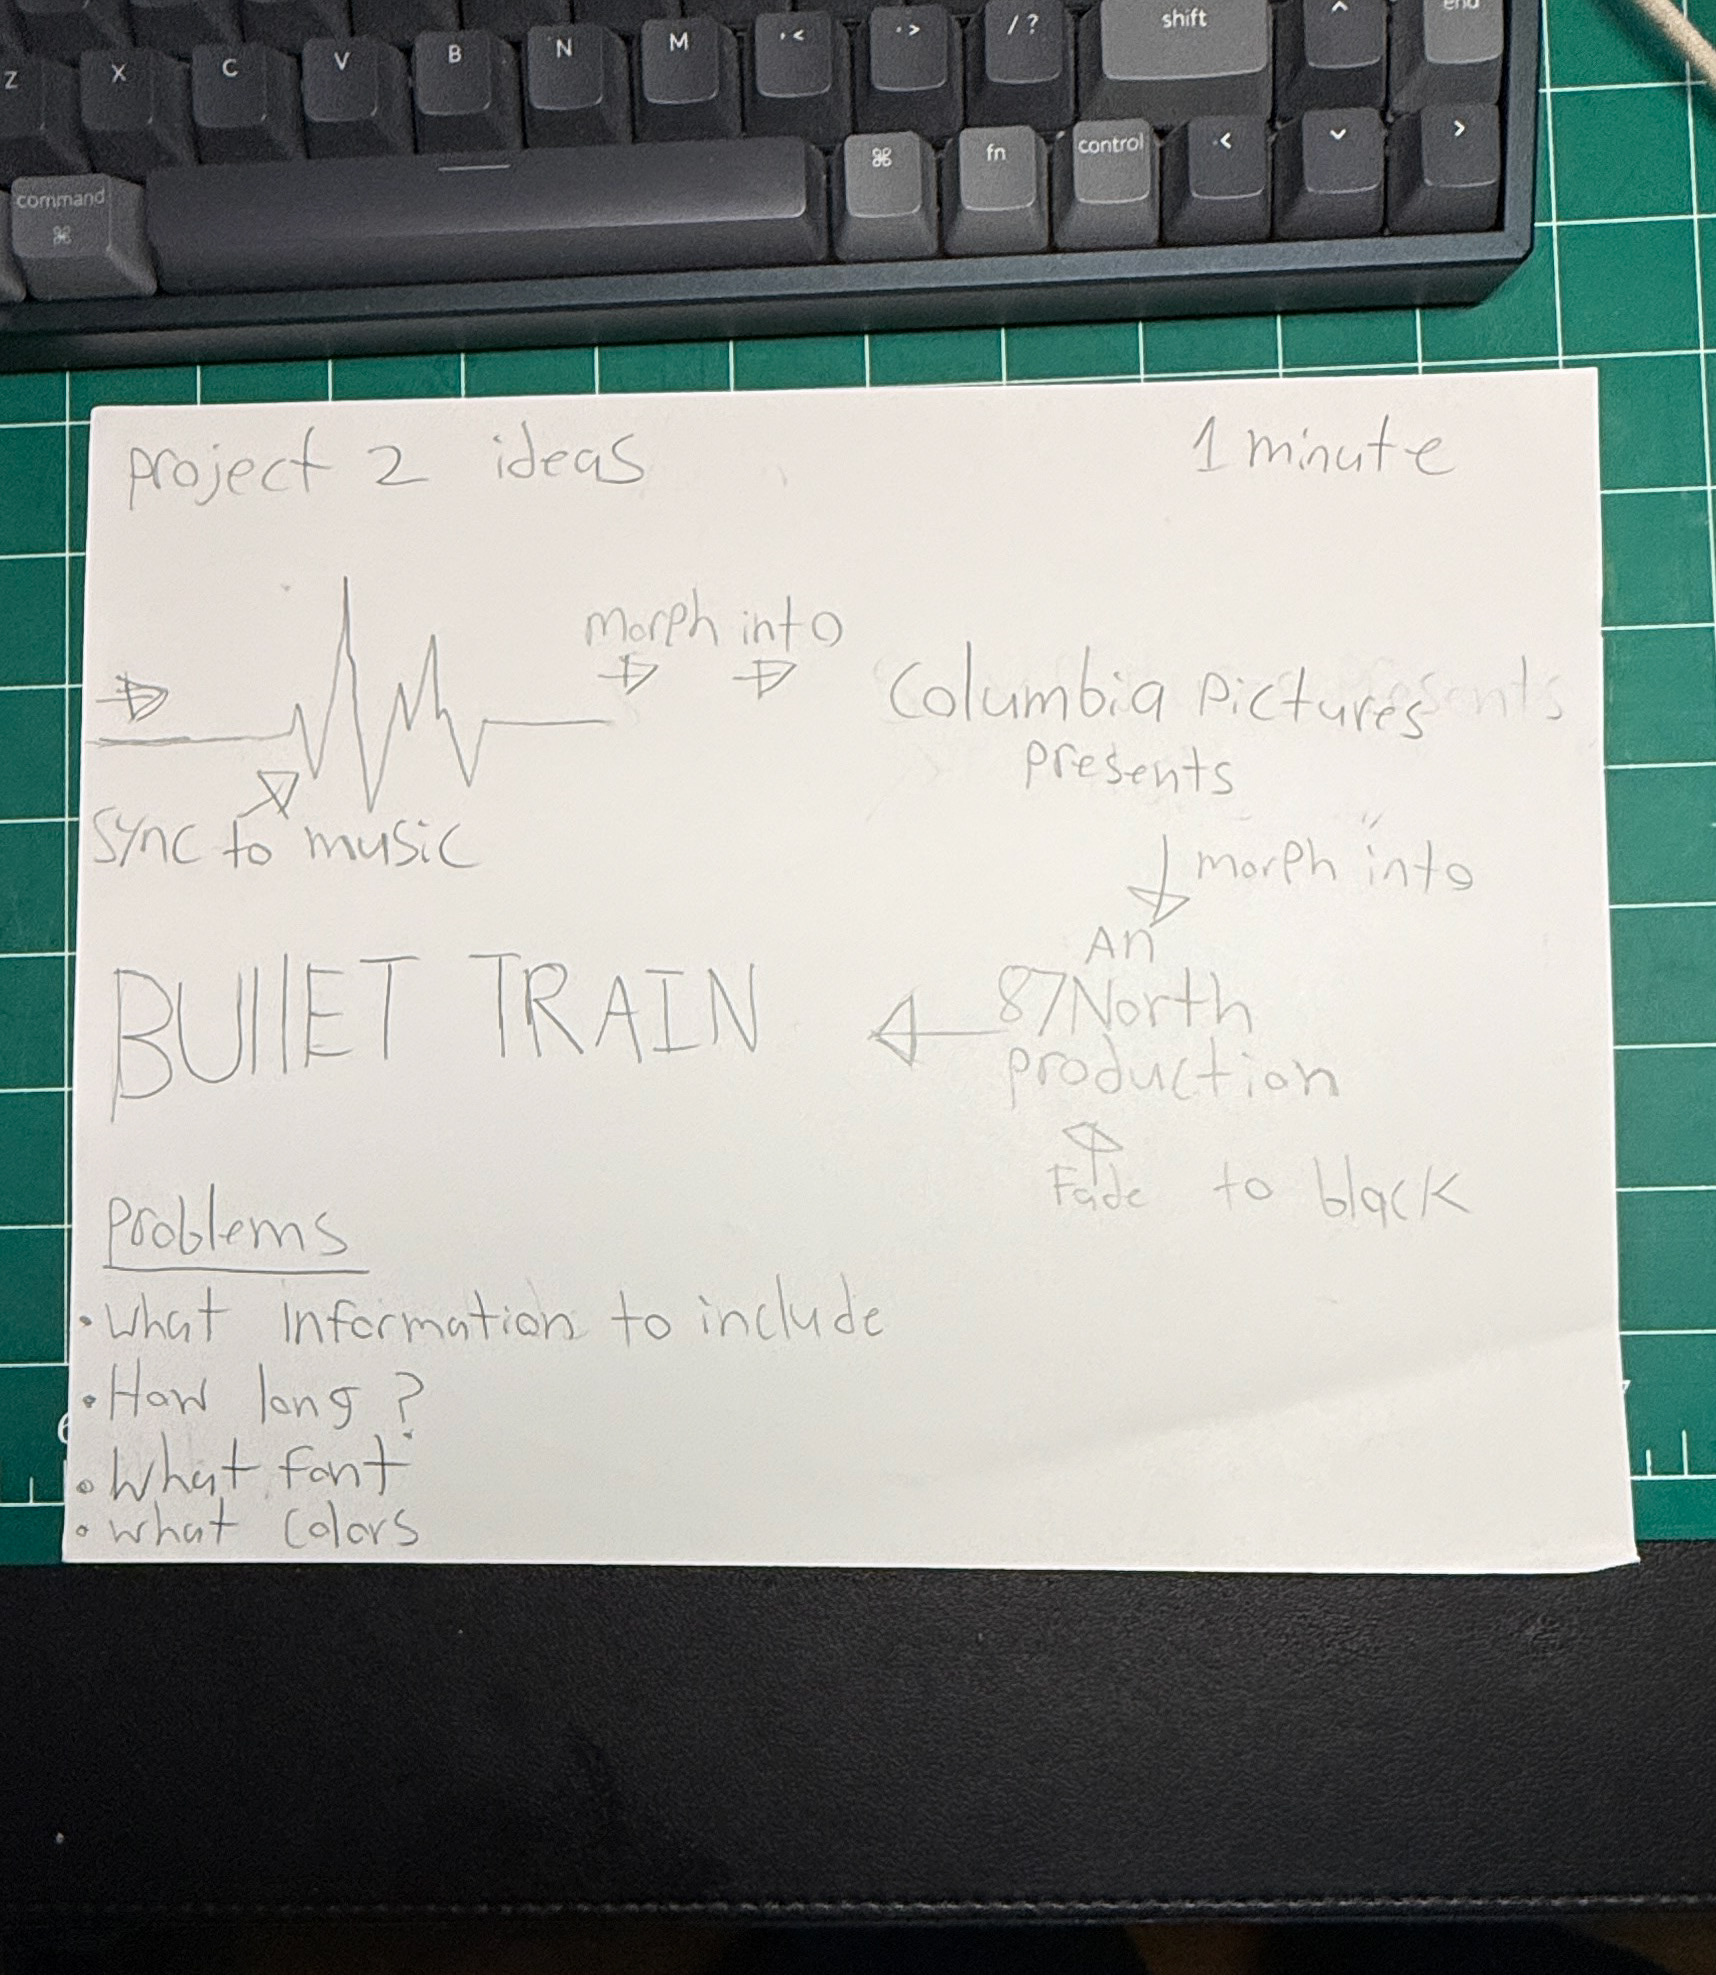 end
shift
Z X C V B N M , < . > / ?
command ⌘ ⌘ fn control
project 2 ideas 1 minute
morph into
Columbia pictures
presents
sync to music
morph into
An
87North
production
BUllET TRAIN
Fade to black
Problems
• What information to include
• How long?
• What font
• what colors